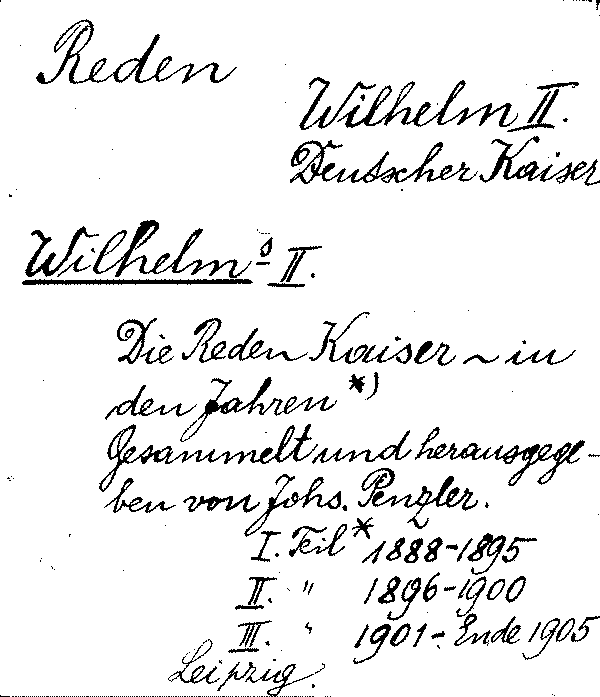 Reden
Wilhelm II.
Deutscher Kaiser
Wilhelms II.
Die Reden Kaiser ~ in
den Jahren *)
Gesammelt und herausgege-
ben von Johs. Penzler.
I. Teil * 1888-1895
II. " 1896-1900
III. " 1901- Ende 1905
Leipzig.